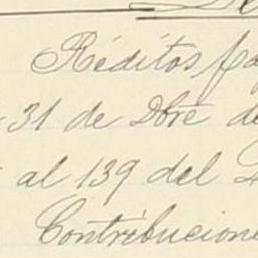 Réditos
31 de Dbre de
al 139 del
Contribucione